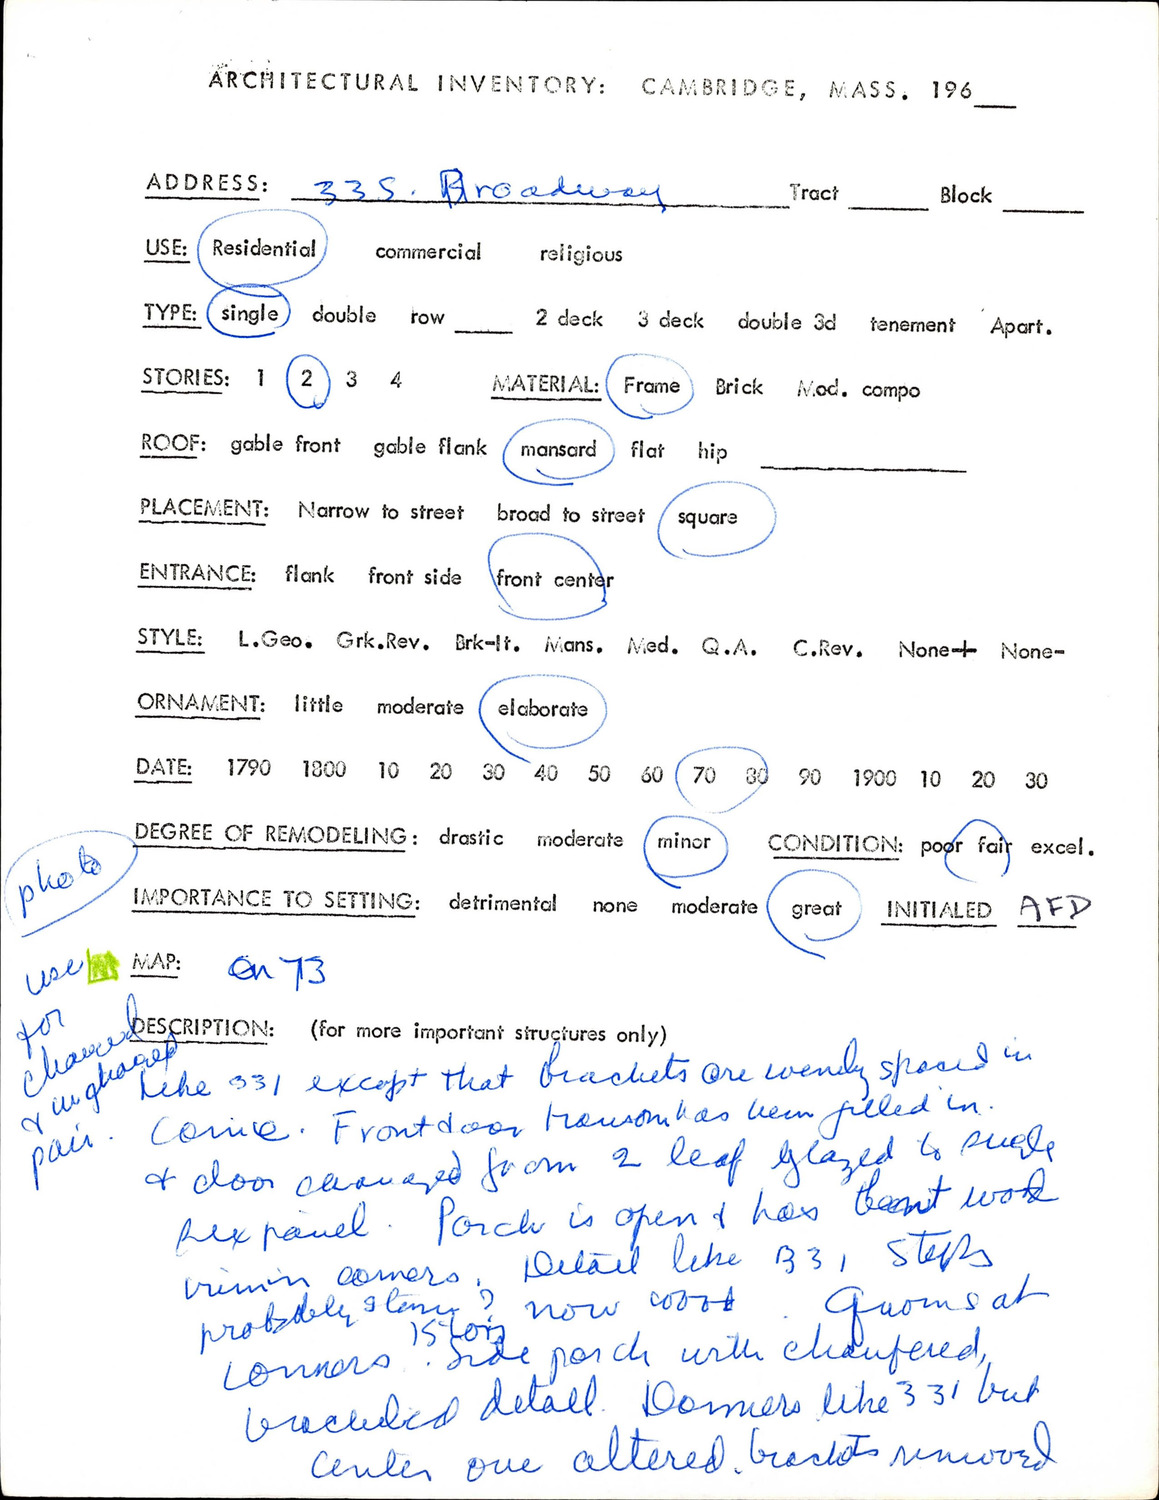 ARCHITECTURAL INVENTORY: CAMBRIDGE, MASS. 196___
ADDRESS: 335. Broadway Tract ____ Block ____
USE: Residential commercial religious
TYPE: single double row ____ 2 deck 3 deck double 3d tenement Apart.
STORIES: 1 2 3 4 MATERIAL: Frame Brick Mod. compo
ROOF: gable front gable flank mansard flat hip ____
PLACEMENT: Narrow to street broad to street square
ENTRANCE: flank front side front center
STYLE: L.Geo. Grk.Rev. Brk-It. Mans. Med. Q.A. C.Rev. None+ None-
ORNAMENT: little moderate elaborate
DATE: 1790 1800 10 20 30 40 50 60 70 80 90 1900 10 20 30
DEGREE OF REMODELING: drastic moderate minor CONDITION: poor fair excel.
photo
IMPORTANCE TO SETTING: detrimental none moderate great INITIALED AFD
MAP: On 73
use
for
changed
& unchanged
pair.
DESCRIPTION: (for more important structures only)
Like 331 except that brackets are evenly spaced in
Cornice. Front door transom has been filled in.
& door changed from 2 leaf glazed to single
six panel. Porch is open & has bent work
in corners. Detail like 331 Steps
probably stone? now wood. Quoins at
1 story
corners. Side porch with chamfered,
bracketed detail. Dormers like 331 but
center one altered, brackets removed